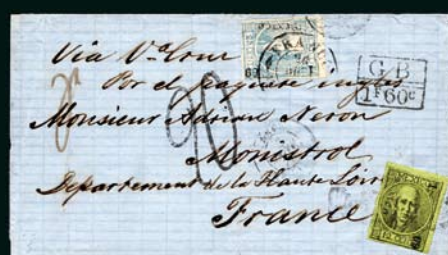 Via V. Cruz
Por el paquete ingles
G B
1F 60c
Monsieur Adrian Neron
Monistrol
Departement de la Haute Loire
France